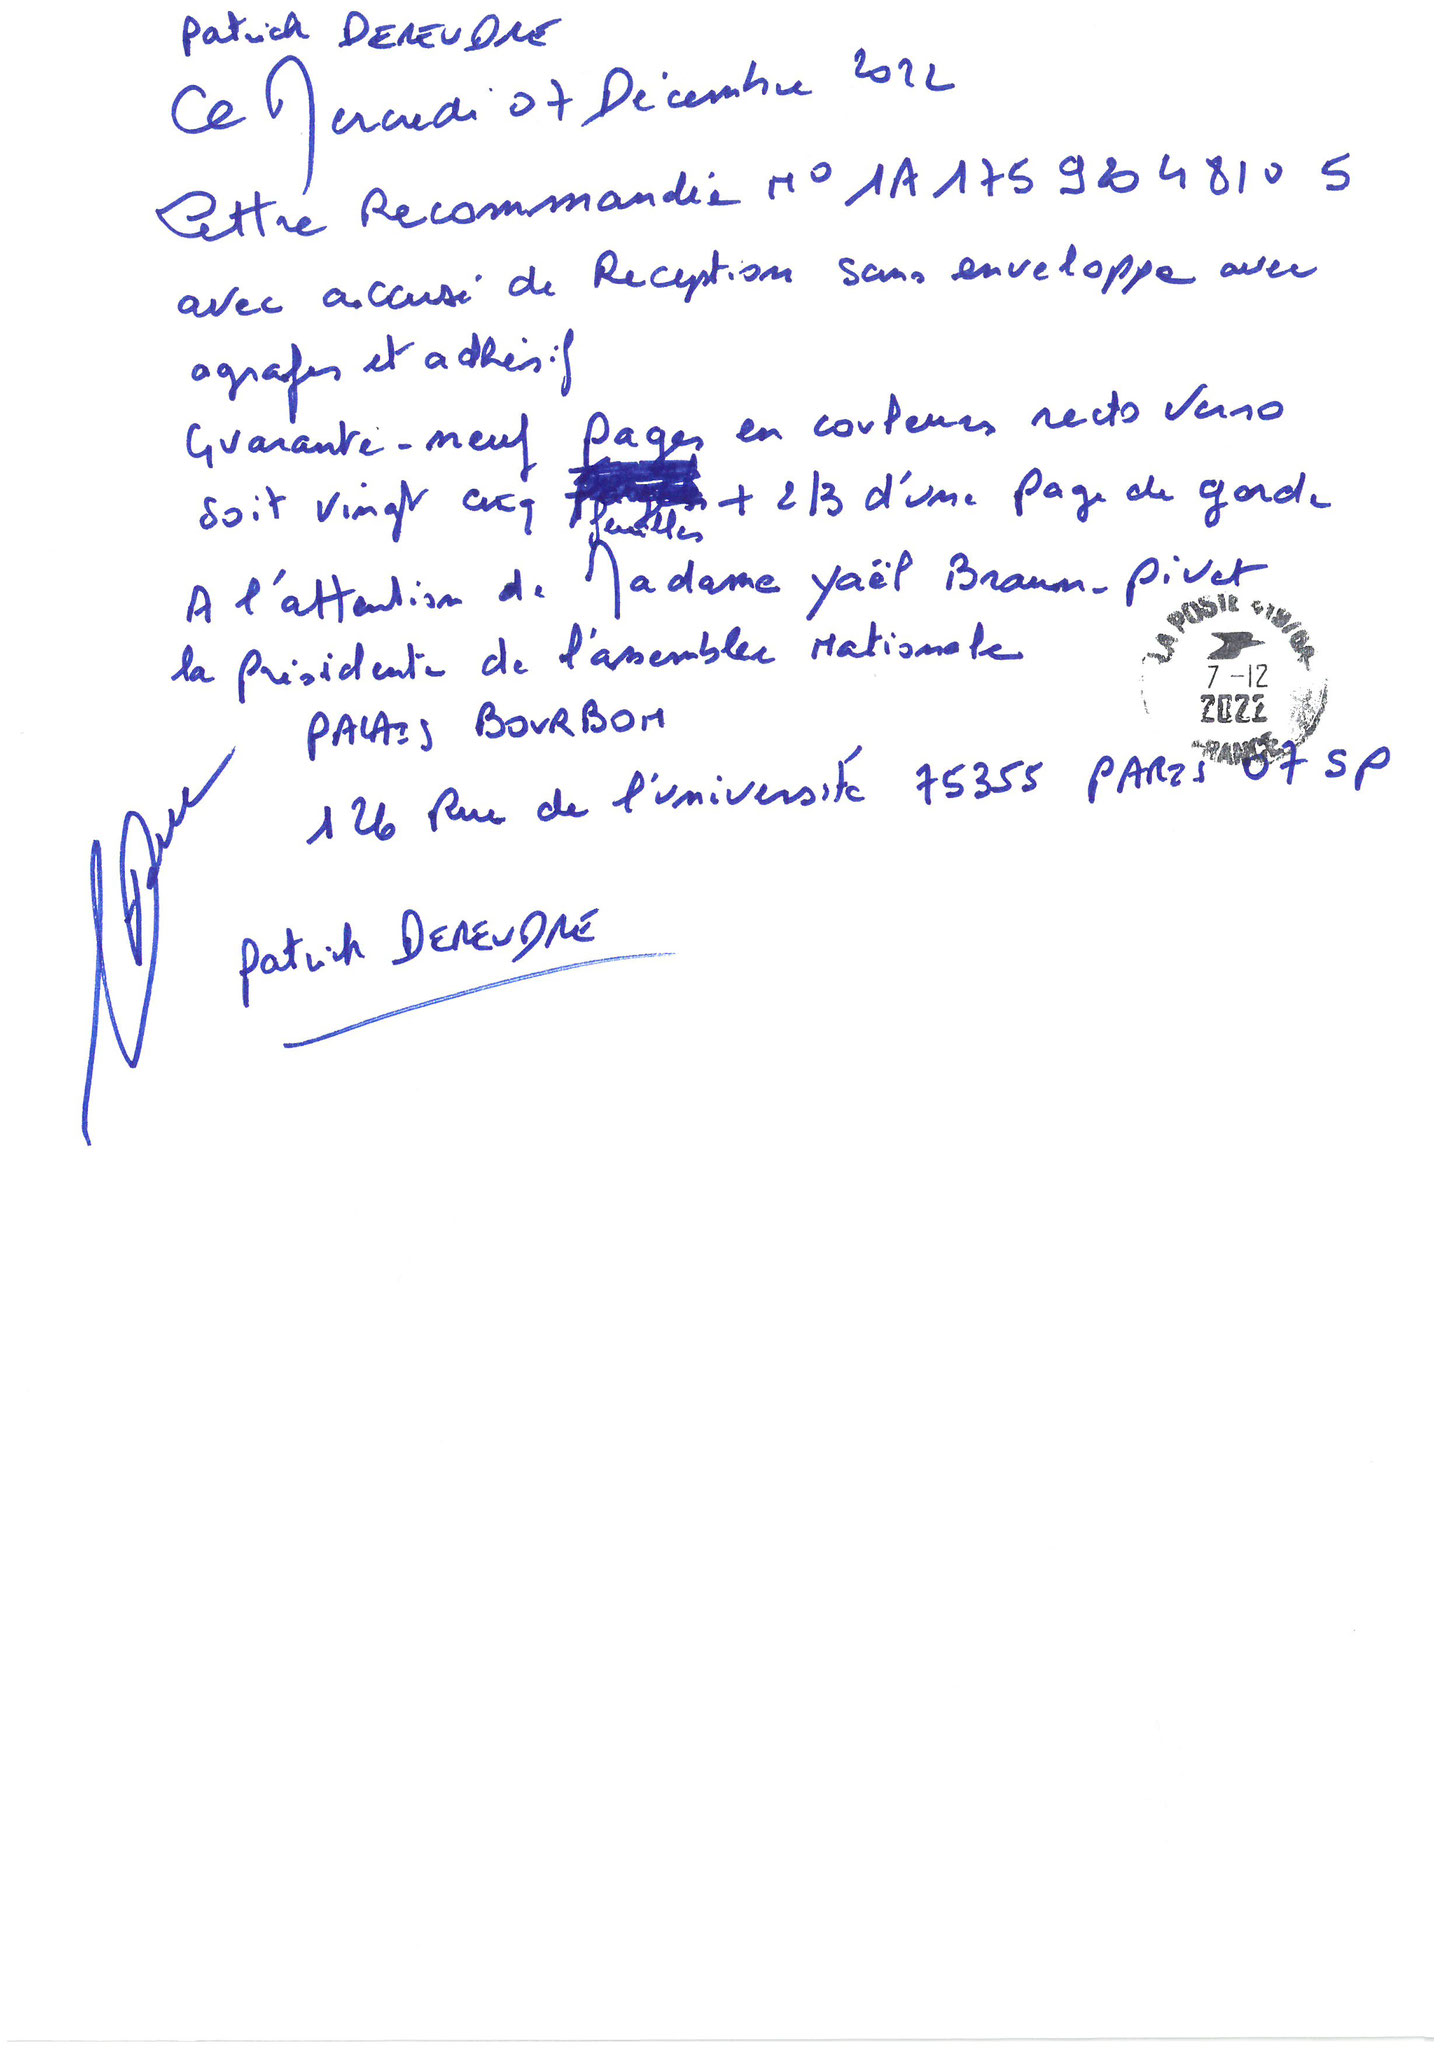 Patrick DEREUDRE
Ce Mercredi 07 Décembre 2022
Lettre Recommandée N° 1A 175 920 4810 5
avec accusé de Reception sans enveloppe avec
agrafes et adhésif
Quarante-neuf pages en couleurs recto Verso
soit vingt cinq feuilles + 2/3 d'une page de garde
A l'attention de Madame Yaël Braun-Pivet
la présidente de l'assemblée Nationale
PALAIS BOURBON
LA POSTE
7-12
2022
FRANCE
126 Rue de l'université 75355 PARIS 07 SP
Patrick DEREUDRE